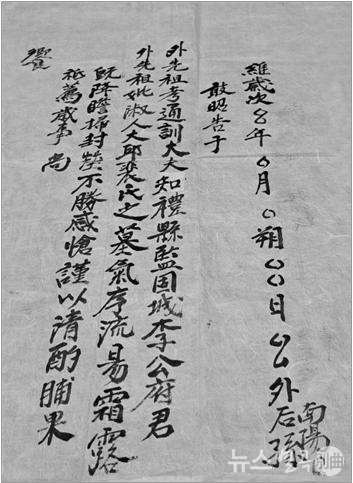 維歲次○年○月○朔○○日○○外后孫
南陽
敢昭告于
外先祖考通訓大夫知禮縣監固城李公府君
外先祖妣淑人大邱裴氏之墓氣序流易霜露
既降瞻掃封塋不勝感愴謹以清酌脯果
祗薦歲事尚
饗
뉴스